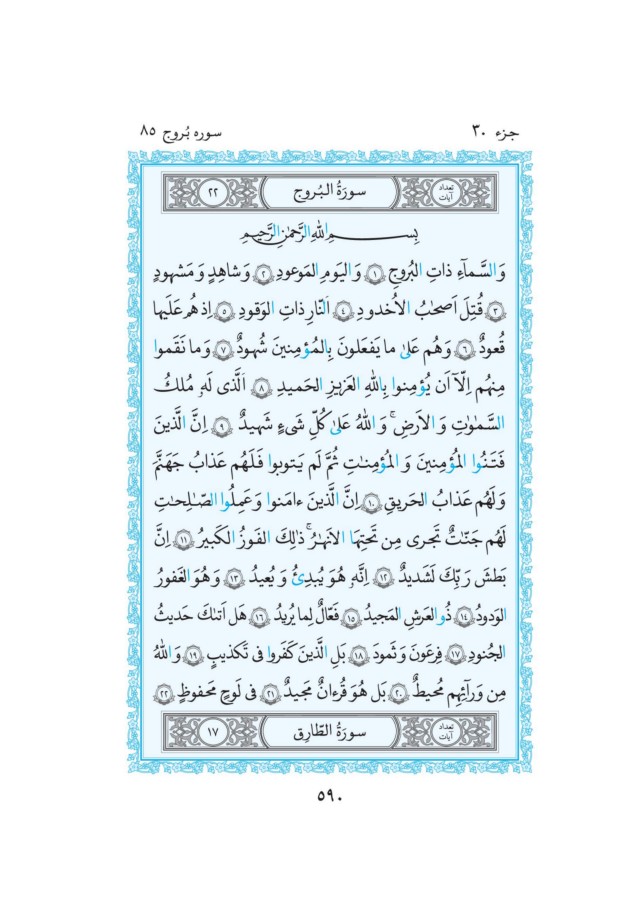 جزء ۳۰
سوره بُروج ۸۵
تعداد آیات
سورَةُ البُروج
۲۲
بِسمِ اللهِ الرَّحمٰنِ الرَّحيمِ
وَالسَّمآءِ ذاتِ البُروجِ ۱ وَاليَومِ المَوعودِ ۲ وَشاهِدٍ وَمَشهودٍ
۳ قُتِلَ اَصحٰبُ الاُخدودِ ۴ اَلنّارِ ذاتِ الوَقودِ ۵ اِذ هُم عَلَيها
قُعودٌ ۶ وَهُم عَلىٰ ما يَفعَلونَ بِالمُؤمِنينَ شُهودٌ ۷ وَما نَقَموا
مِنهُم اِلّآ اَن يُؤمِنوا بِاللهِ العَزيزِ الحَميدِ ۸ اَلَّذى لَهٗ مُلكُ
السَّمٰوٰتِ وَالاَرضِ ۚ وَاللهُ عَلىٰ كُلِّ شَىءٍ شَهيدٌ ۹ اِنَّ الَّذينَ
فَتَنُوا المُؤمِنينَ وَالمُؤمِنٰتِ ثُمَّ لَم يَتوبوا فَلَهُم عَذابُ جَهَنَّمَ
وَلَهُم عَذابُ الحَريقِ ۱۰ اِنَّ الَّذينَ ءامَنوا وَعَمِلُوا الصّٰلِحٰتِ
لَهُم جَنّٰتٌ تَجرى مِن تَحتِهَا الاَنهٰرُ ۚ ذٰلِكَ الفَوزُ الكَبيرُ ۱۱ اِنَّ
بَطشَ رَبِّكَ لَشَديدٌ ۱۲ اِنَّهٗ هُوَ يُبدِئُ وَيُعيدُ ۱۳ وَهُوَ الغَفورُ
الوَدودُ ۱۴ ذُو العَرشِ المَجيدُ ۱۵ فَعّالٌ لِما يُريدُ ۱۶ هَل اَتىٰكَ حَديثُ
الجُنودِ ۱۷ فِرعَونَ وَثَمودَ ۱۸ بَلِ الَّذينَ كَفَروا فى تَكذيبٍ ۱۹ وَاللهُ
مِن وَرآئِهِم مُحيطٌ ۲۰ بَل هُوَ قُرءانٌ مَجيدٌ ۲۱ فى لَوحٍ مَحفوظٍ ۲۲
تعداد آیات
سورَةُ الطّارِق
۱۷
۵۹۰